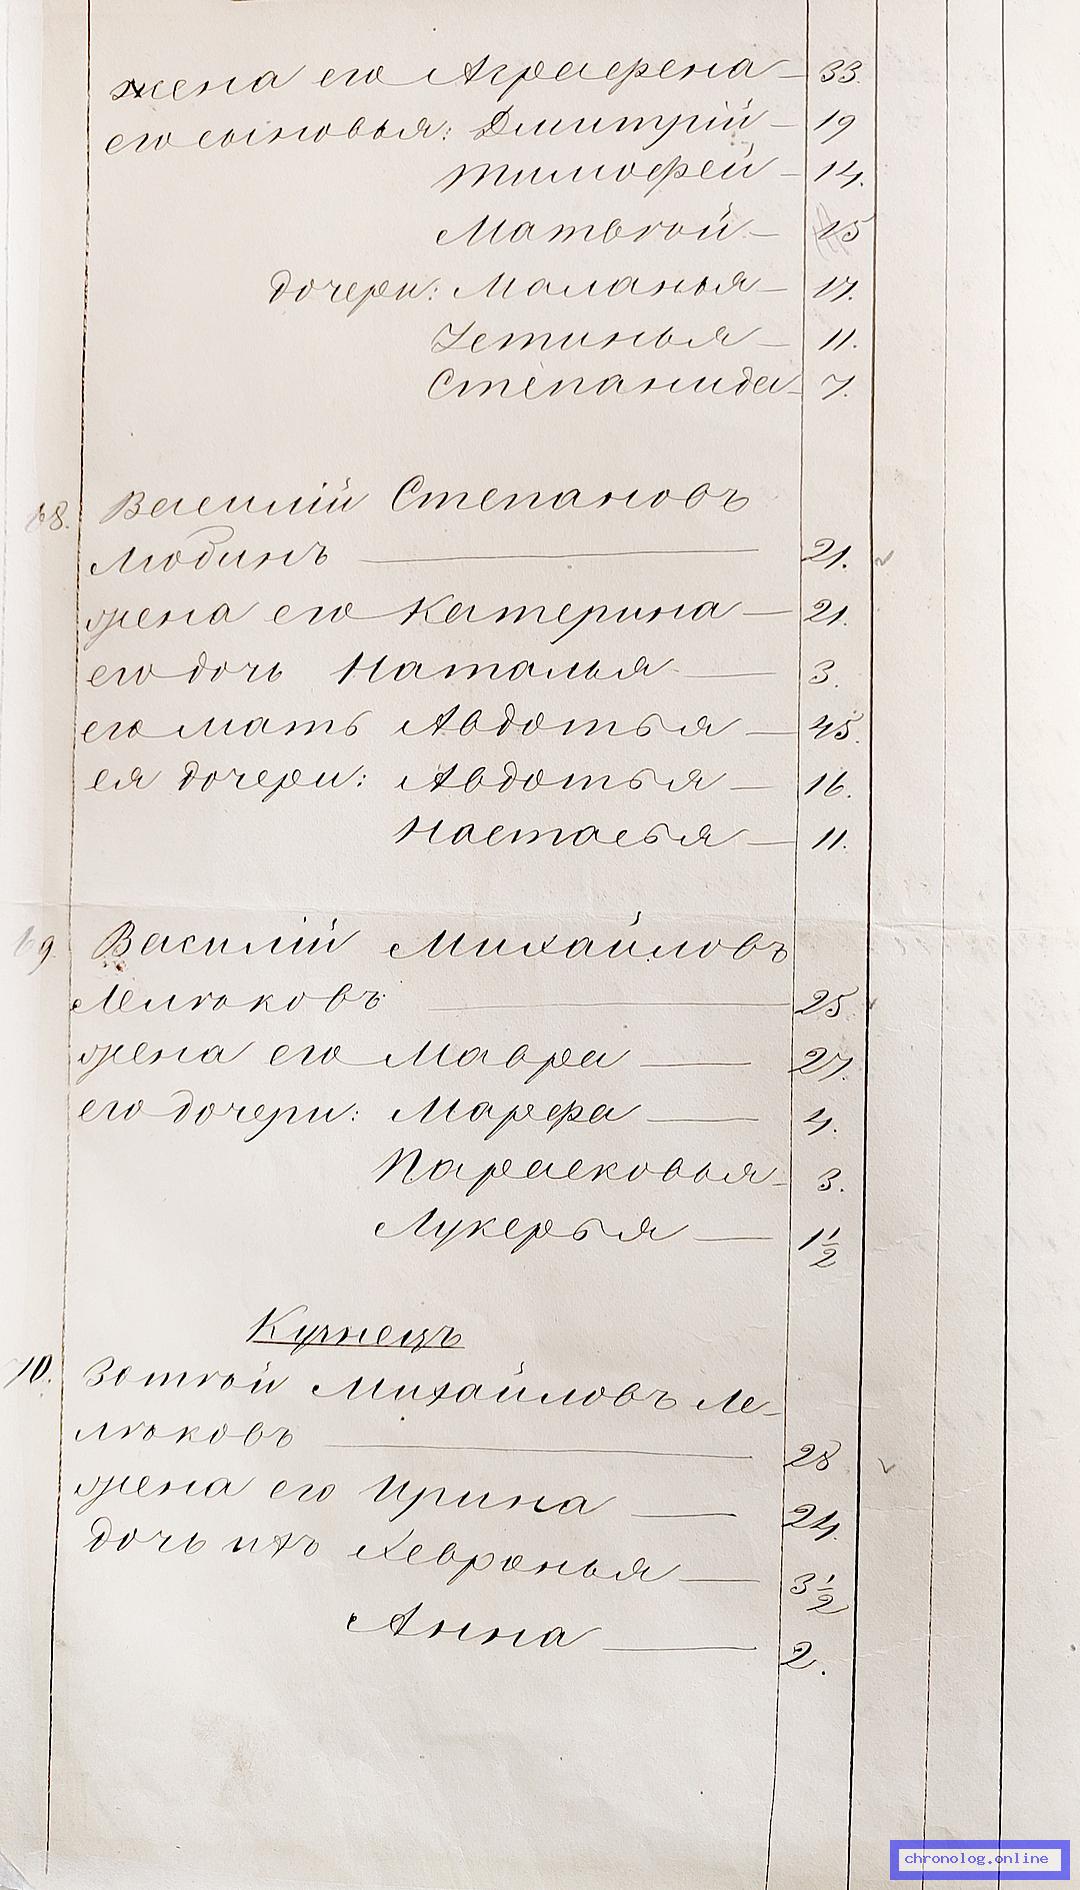 жена его Аграфена — 33.
его сыновья: Дмитрій — 19
Тимофей — 14.
Матвѣй — 15
дочери: Маланья — 17.
Устинья — 11.
Степанида — 7.
68. Василій Степановъ
Любинъ — 21.
жена его Катерина — 21.
его дочь Наталья — 3.
его мать Авдотья — 45.
ея дочери: Авдотья — 16.
Настасья — 11.
69. Василій Михайловъ
Лелѣковъ — 25.
жена его Мавра — 27.
его дочери: Марфа — 4.
Парасковья — 3.
Лукерья — 1 1/2
Кузнецъ
70. Зотѣй Михайловъ Ле-
лѣковъ — 28
жена его Ирина — 24.
дочь ихъ Хевронья — 3 1/2
Анна — 2.
chronolog.online